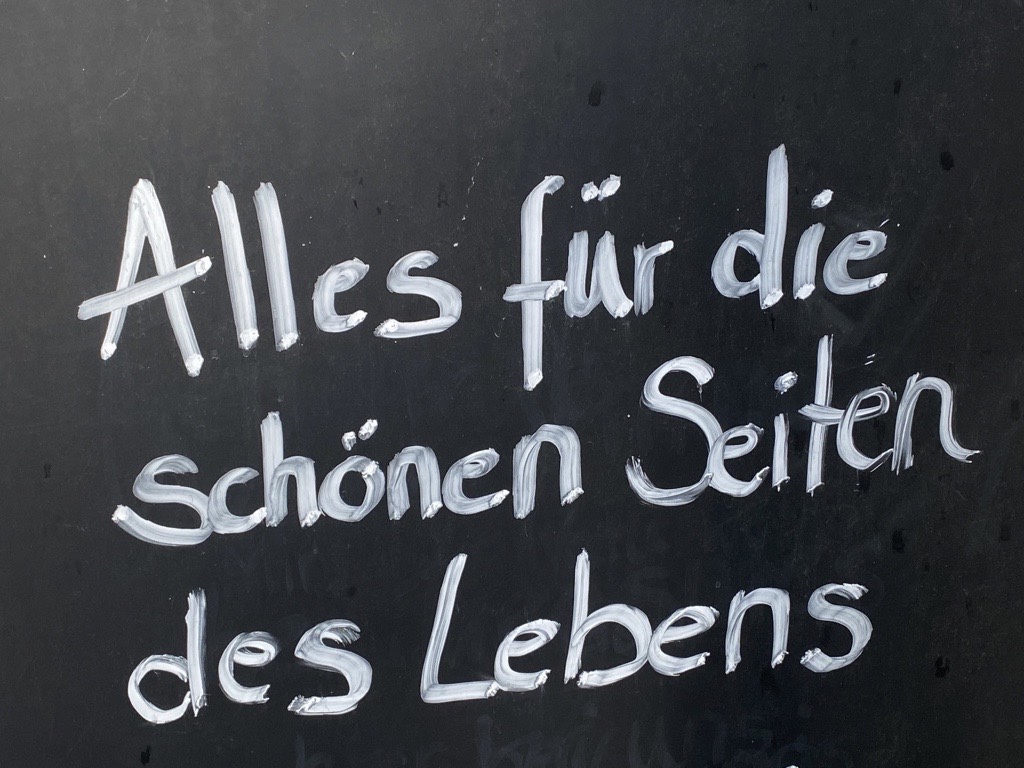 Alles für die
schönen Seiten
des Lebens